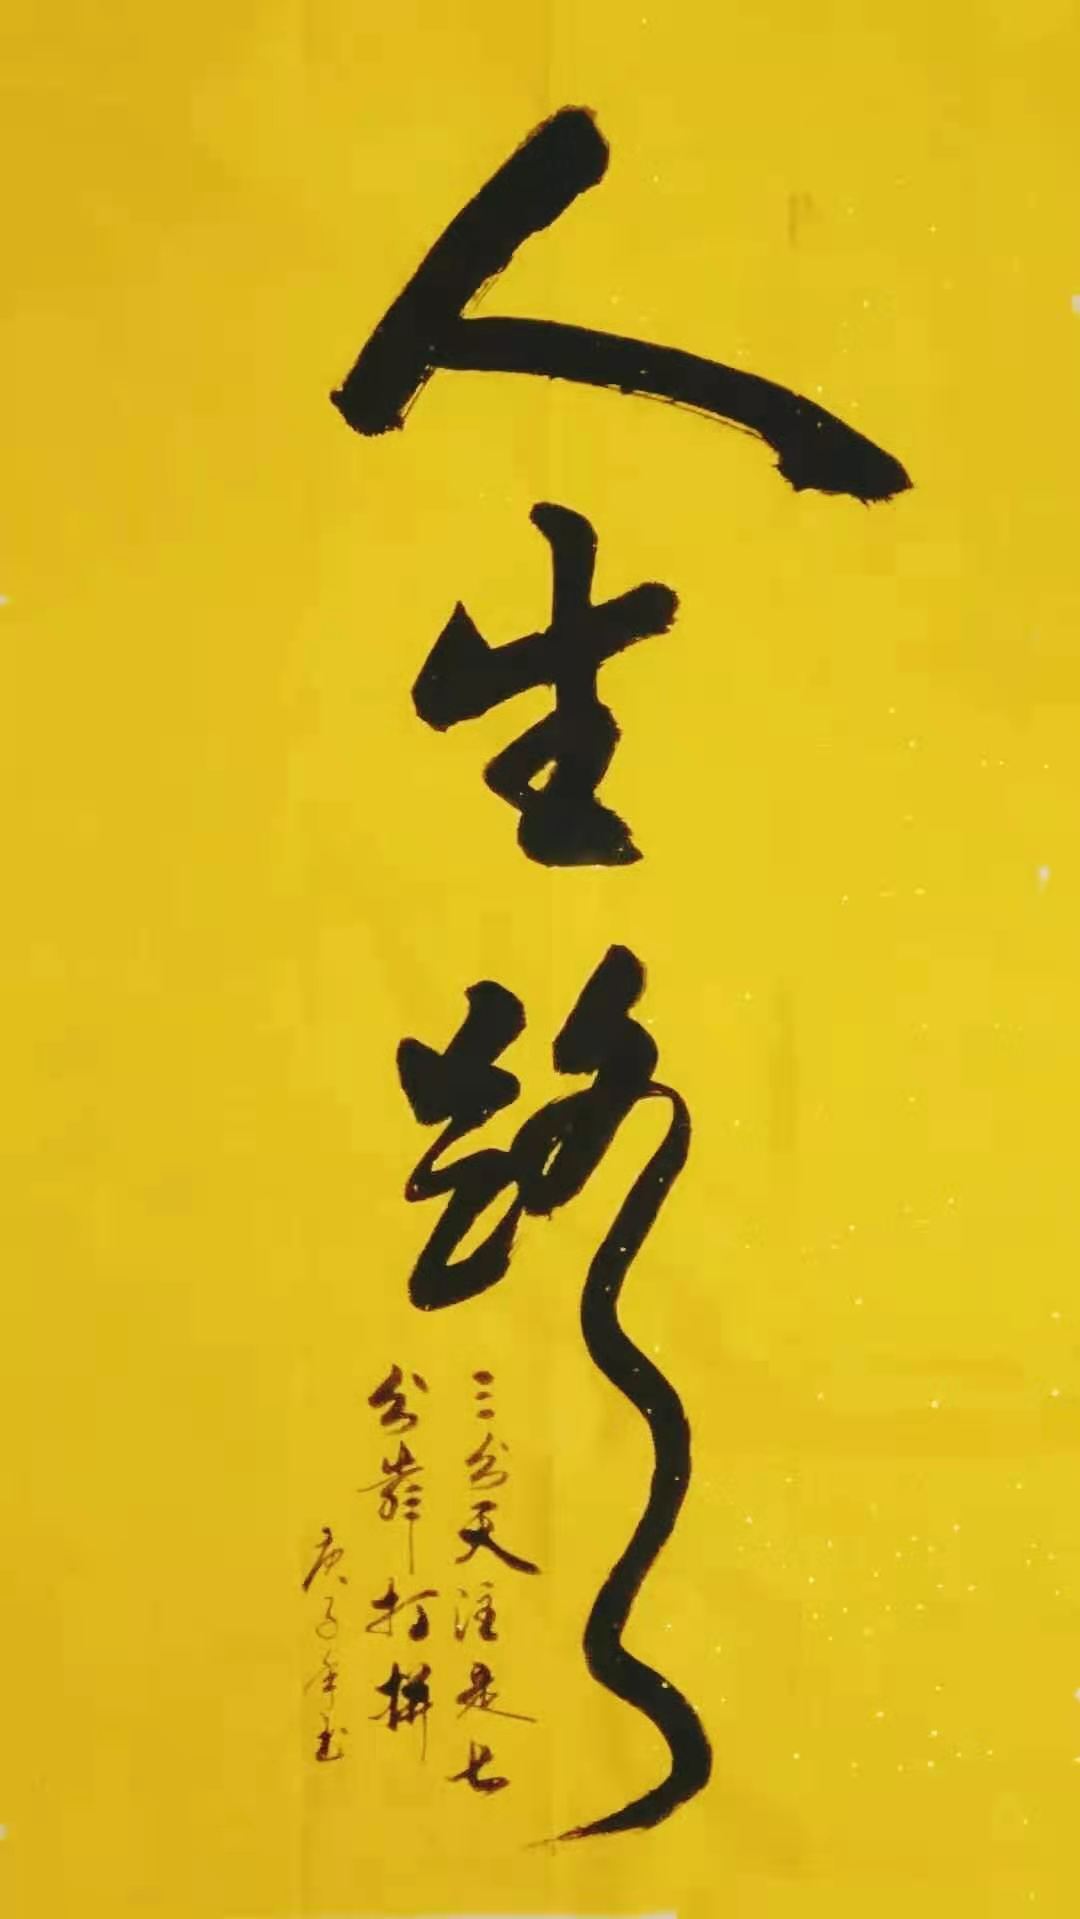 人生路
三分天注定七
分靠打拼
庚子年书